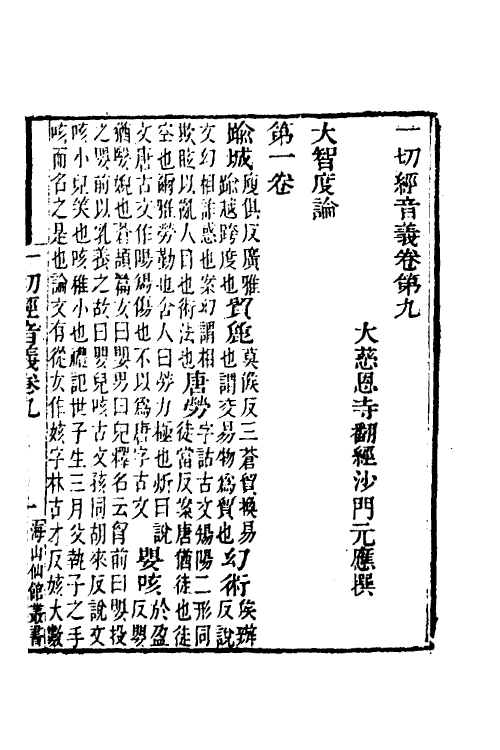 一切經音義卷第九
大慈恩寺翻經沙門元應撰
大智度論
第一卷
踰城庾俱反廣雅踰越跨度也貿鹿莫候反三蒼貿換易也謂交易物爲貿也幻術侯辦反說
文幻相詐惑也案幻謂相欺眩以亂人目也術法也唐勞徒當反案唐猶徒也徒空也
爾雅勞勤也舍人曰勞力極也炘曰說文唐古文作啺啺傷也不以爲唐字古文
字詁古文鍚陽二形同
嬰咳於盈反嬰猶嬰婗也蒼頡篇女曰嬰男曰兒釋名云胷前曰嬰投
之嬰前以乳養之故曰嬰兒咳古文孩同胡來反說文
咳小兒笑也咳稚小也禮記世子生三月父執子之手
咳而名之是也論文有從女作姟字林古才反姟大數
一切經音義卷九
一
海山仙館叢書